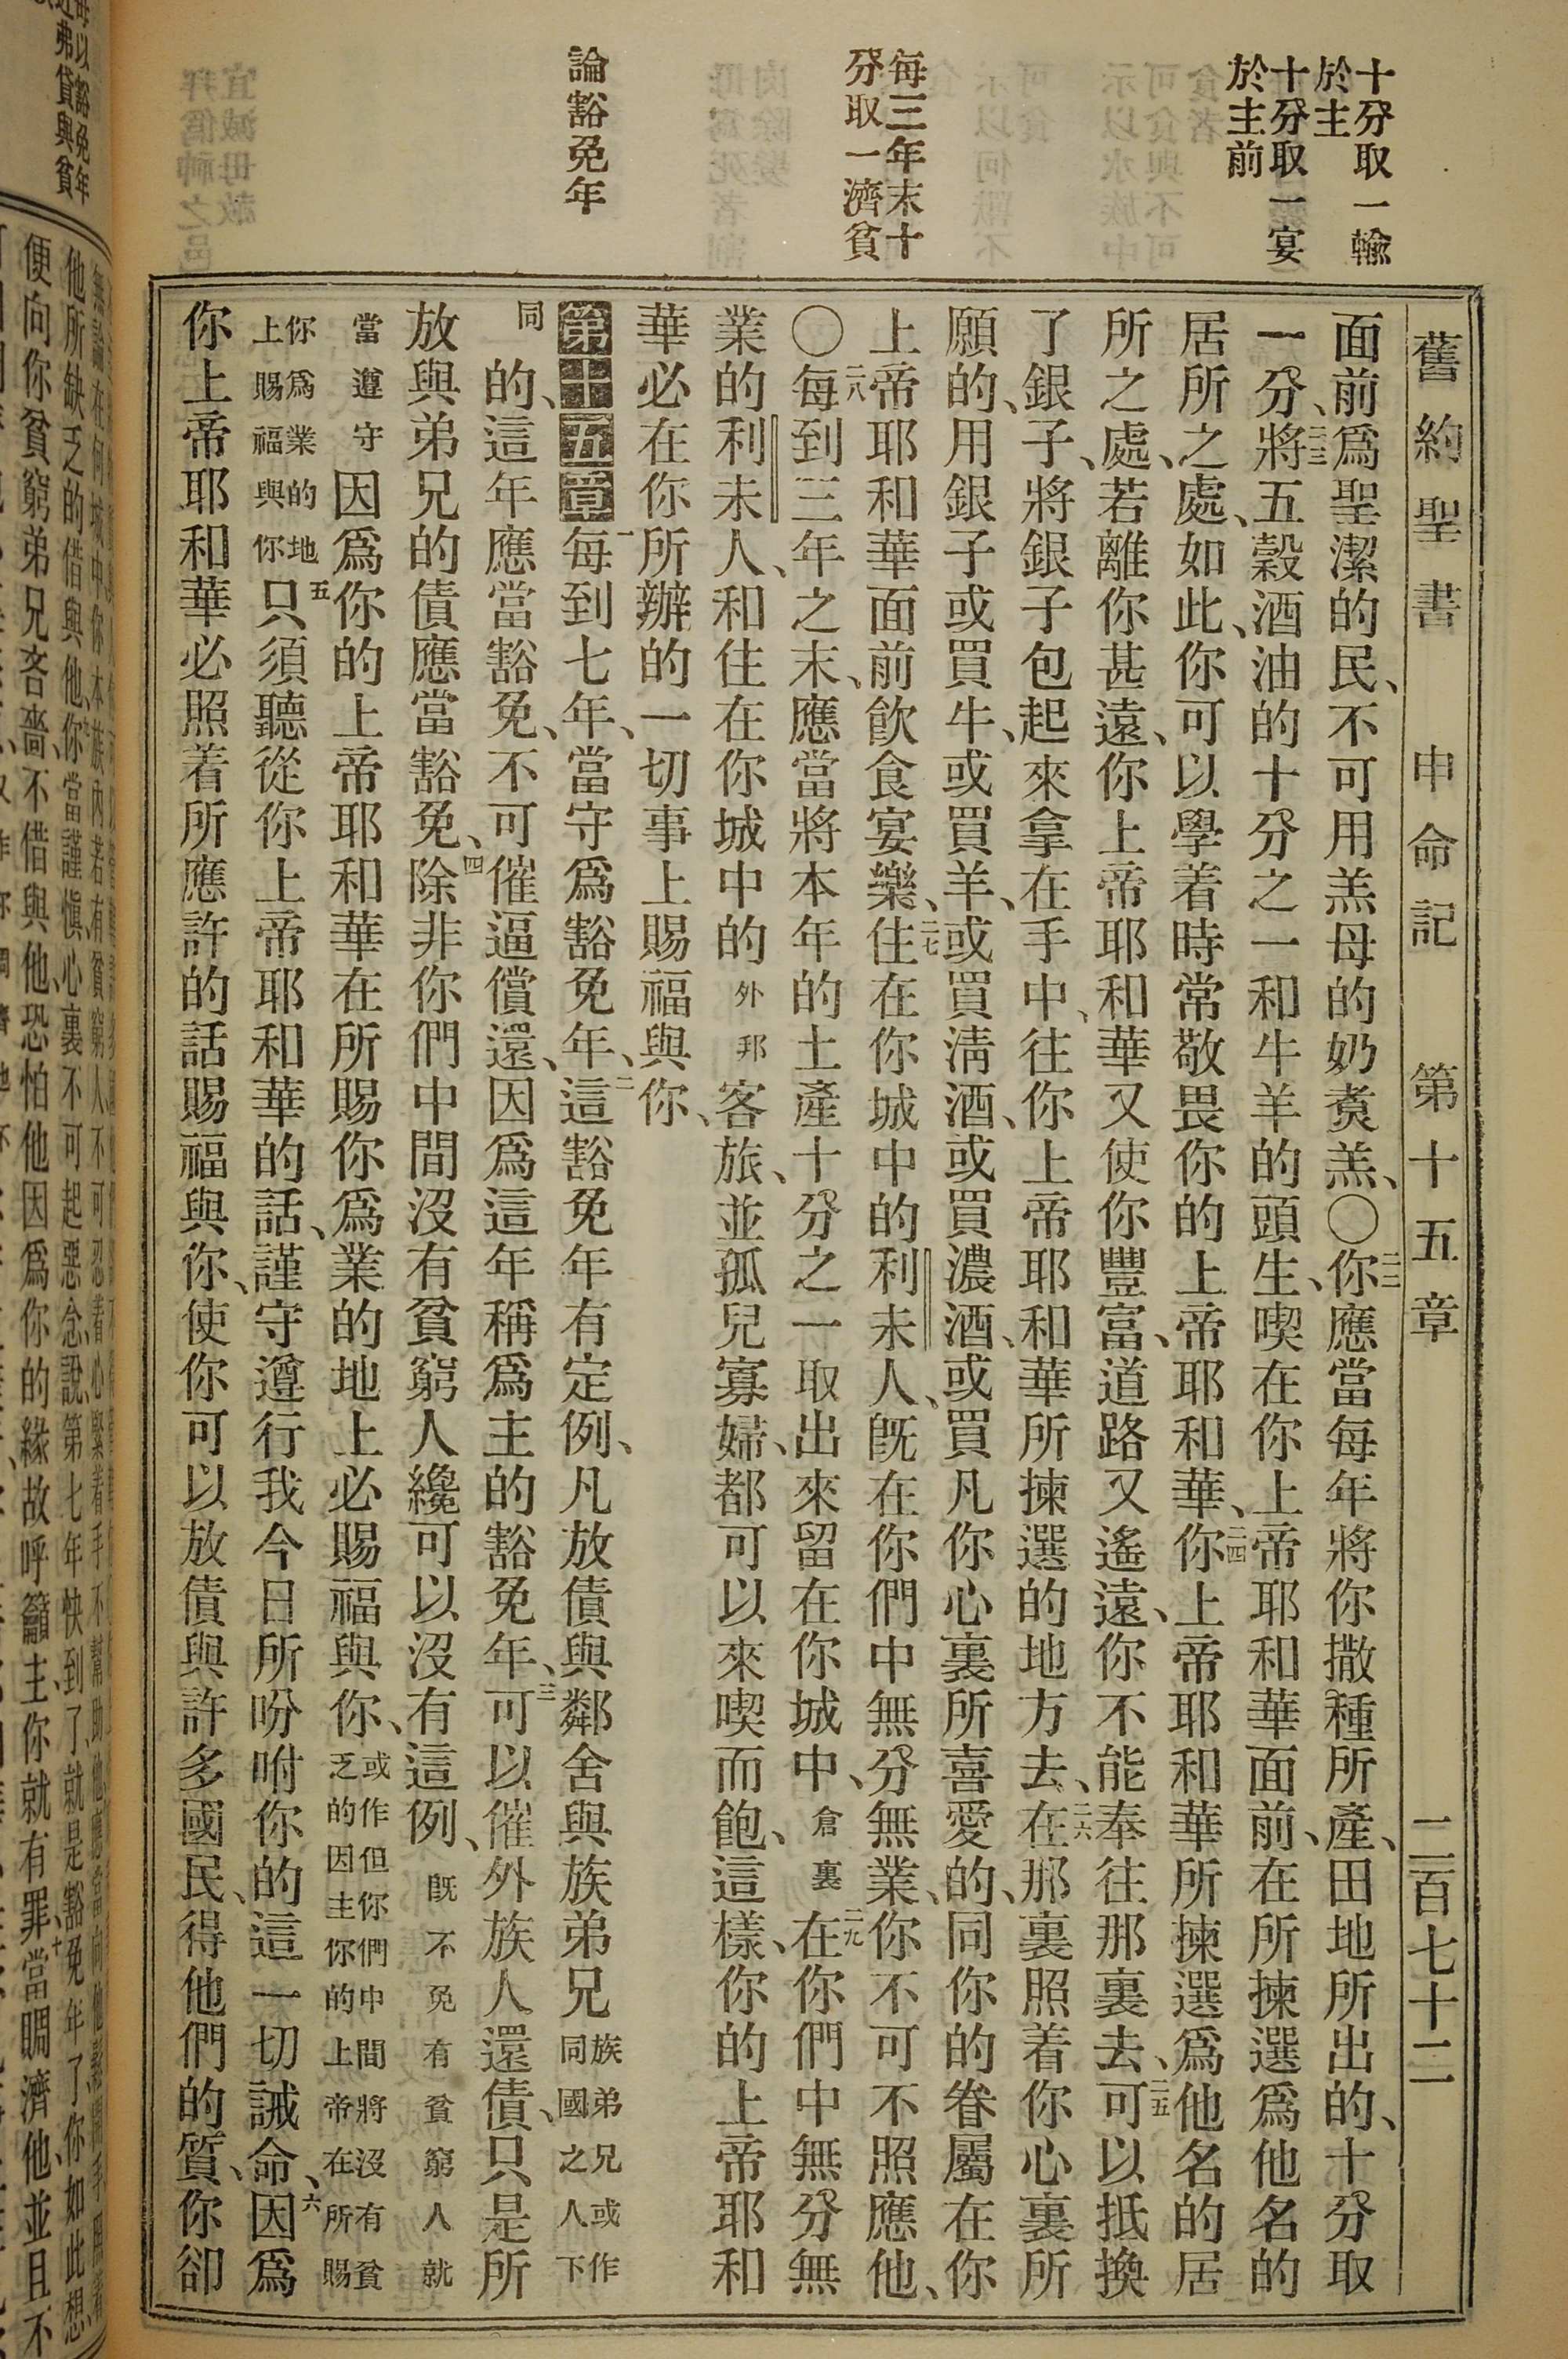 舊約聖書　申命記　第十五章　二百七十二
十分取一輸
於主
十分取一宴
於主前
每三年末十
分取一濟貧
論豁免年
面前爲聖潔的民、不可用羔母的奶煑羔、〇二二你應當每年將你撒種所產、田地所出的、十分取
一分、二三將五穀酒油的十分之一和牛羊的頭生、喫在你上帝耶和華面前、在所揀選爲他名的
居所之處、如此、你可以學着時常敬畏你的上帝耶和華、二四你上帝耶和華所揀選爲他名的居
所之處、若離你甚遠、你上帝耶和華又使你豐富、道路又遙遠、你不能奉往那裏去、二五可以抵換
了銀子、將銀子包起來拿在手中、往你上帝耶和華所揀選的地方去、二六在那裏照着你心裏所
願的、用銀子或買牛、或買羊、或買淸酒、或買濃酒、或買凡你心裏所喜愛的、同你的眷屬在你
上帝耶和華面前飮食宴樂、二七住在你城中的利未人、旣在你們中無分無業、你不可不照應他、
〇二八每到三年之末、應當將本年的土產十分之一取出來留在你城中、倉裏二九在你們中無分無
業的利未人、和住在你城中的外邦客旅、並孤兒寡婦、都可以來喫而飽、這樣、你的上帝耶和
華必在你所辦的一切事上賜福與你、
第十五章一每到七年、當守爲豁免年、二這豁免年有定例、凡放債與鄰舍與族弟兄族弟兄或作同國之人下
同的、這年應當豁免、不可催逼償還、因爲這年稱爲主的豁免年、三可以催外族人還債、只是所
放與弟兄的債應當豁免、四除非你們中間沒有貧窮人纔可以沒有這例、旣不免有貧窮人就
當遵守因爲你的上帝耶和華在所賜你爲業的地上必賜福與你、或作但你們中間將沒有貧乏的因主你的上帝在所賜
你爲業的地上賜福與你五只須聽從你上帝耶和華的話、謹守遵行我今日所吩咐你的這一切誡命、六因爲
你上帝耶和華必照着所應許的話賜福與你、使你可以放債與許多國民、得他們的質、你卻
便向你貧窮弟兄吝嗇、不借與他、恐怕他因爲你的緣故呼籲主、你就有罪、十當賙濟他、並且不